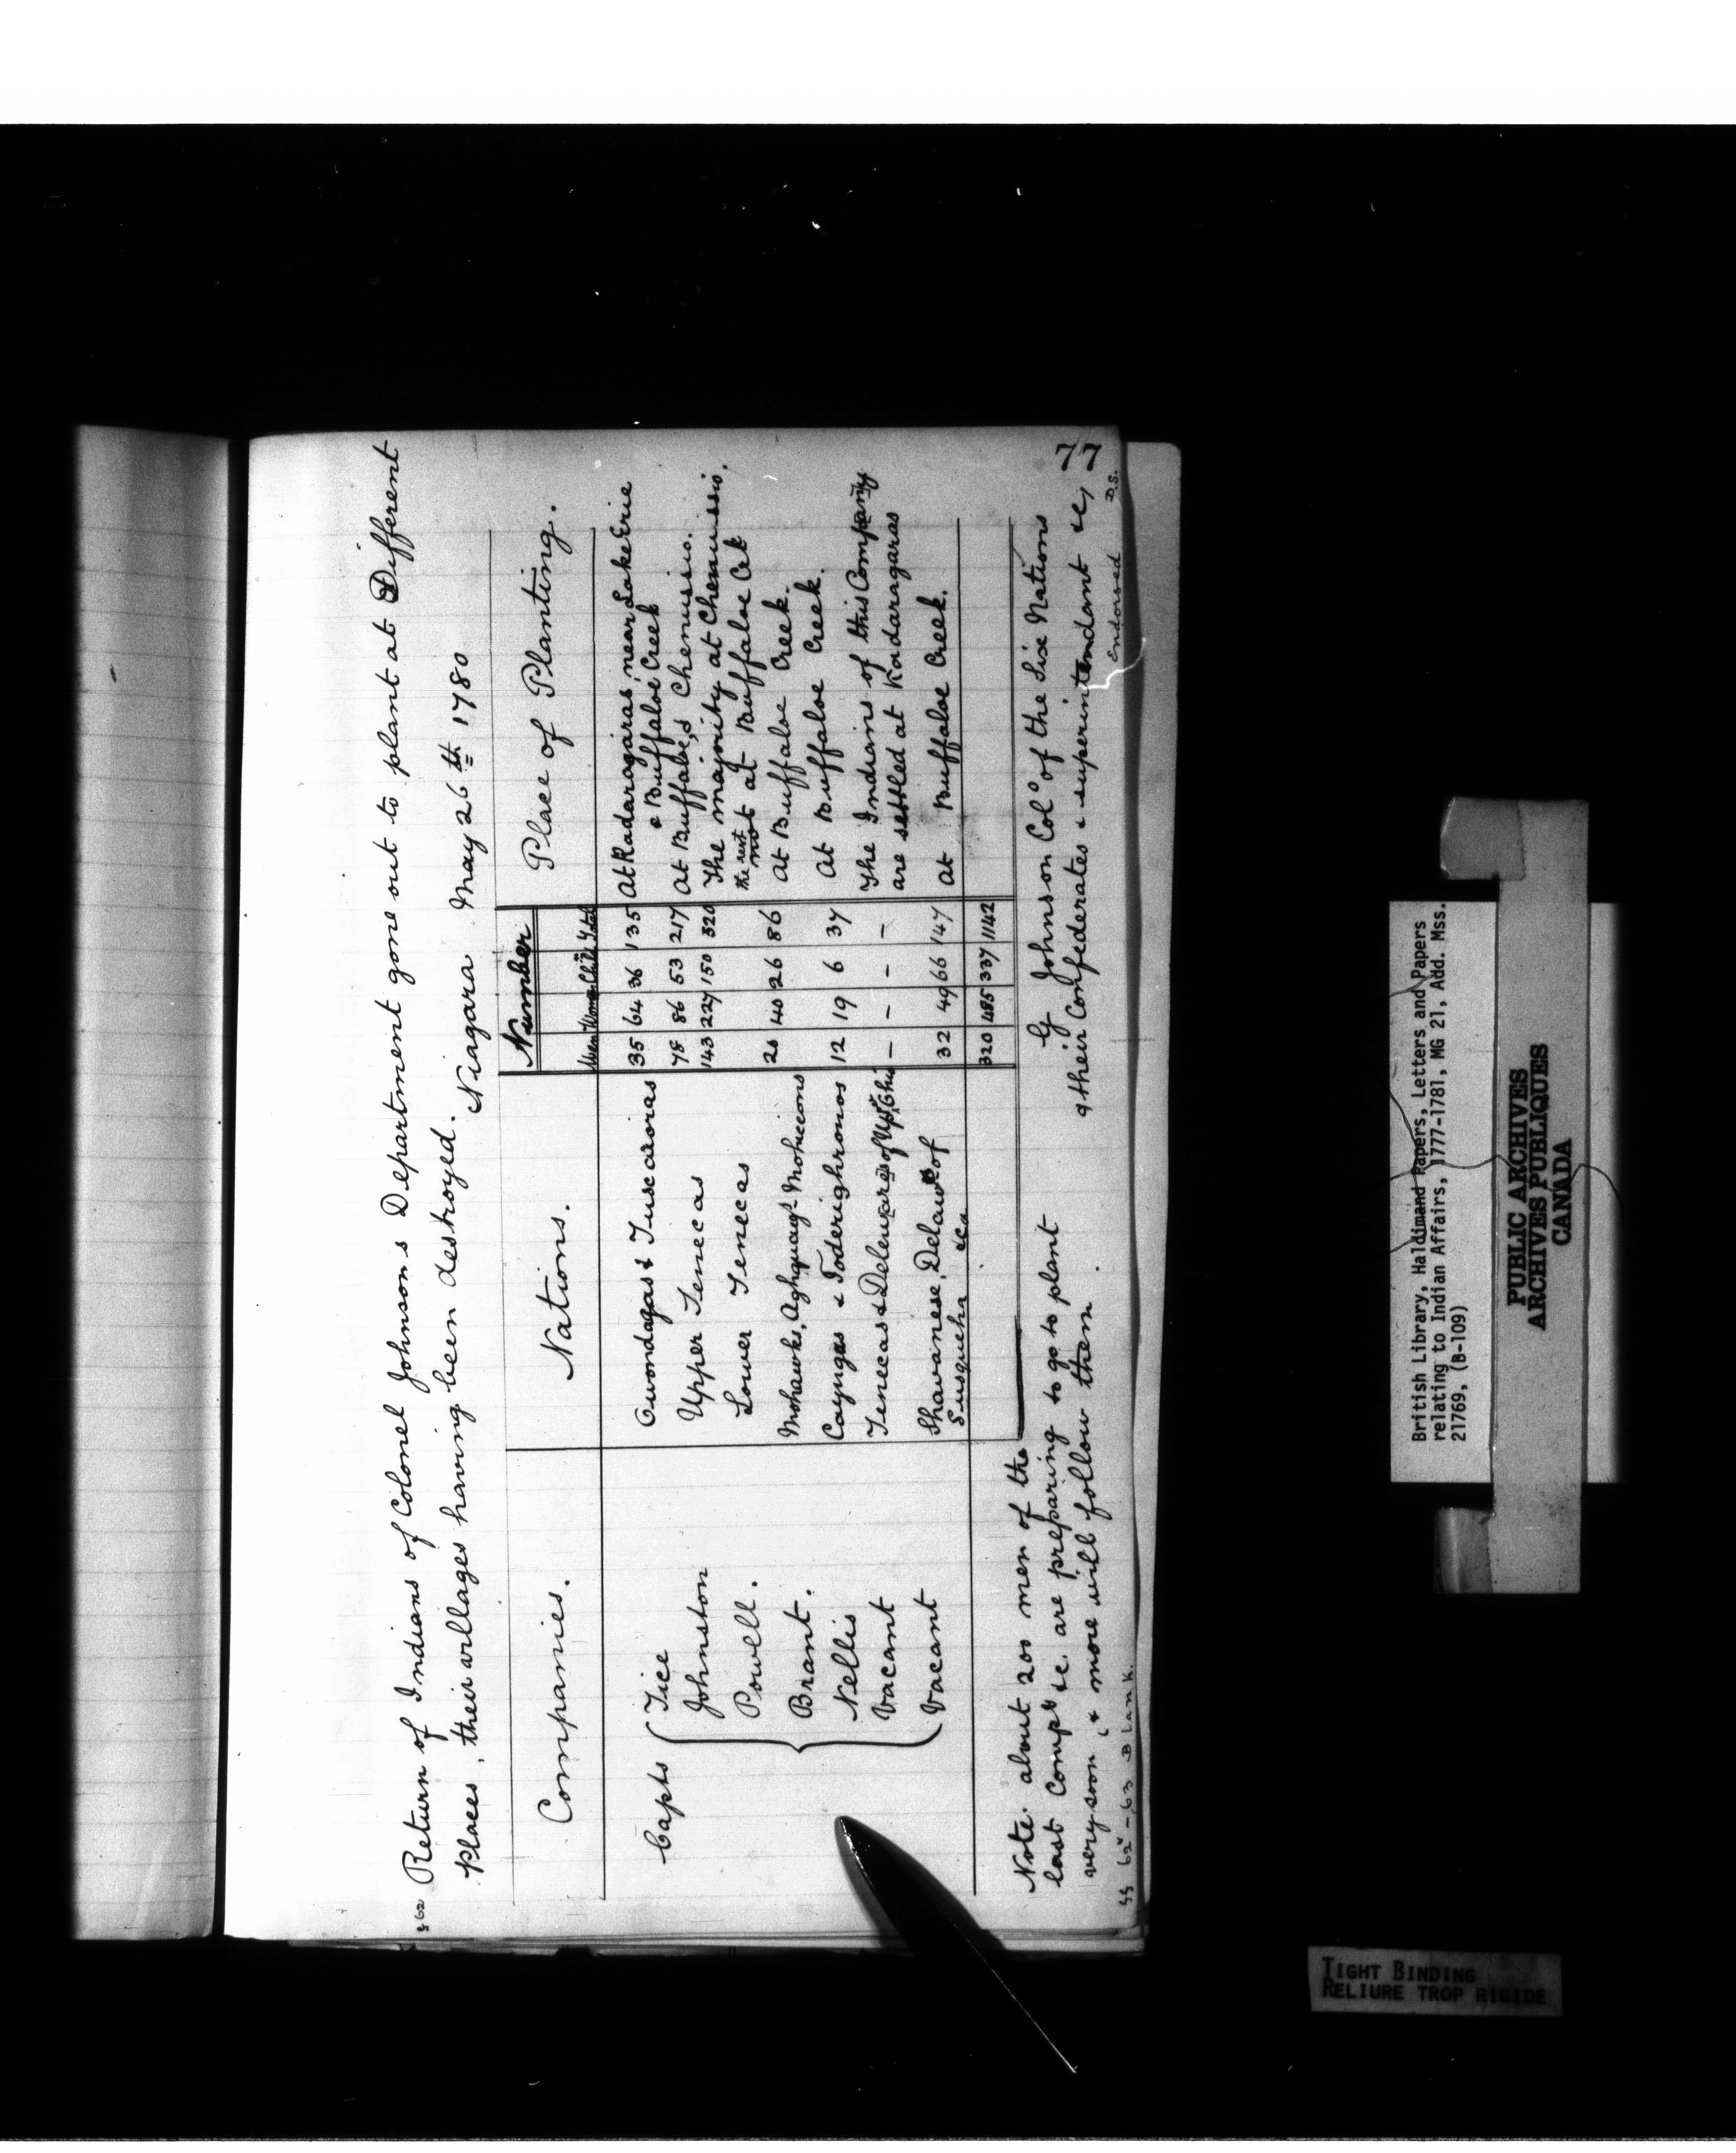 f 62 Return of Indians of Colonel Johnson s Department gone out to plant at Different
Places, their villages having been destroyed.
Niagara May 26 th 1780
Companies. Nations. Number Place of Planting.
Men Women Child Total
Capts
Tice Onondagas & Tuscaroras 35 64 36 135 At Kadaragaras, near Lake Erie
& Buffaloe Creek
Johnston Upper Senecas 78 86 53 217 At Buffaloe, & Chenussio.
Powell. Lower Senecas 143 227 150 520 The majority at Chenussio.
the rest not at Buffaloe Crk
Brant. Mohawks, Aghquags Mohiccons 20 40 26 86 At Buffaloe Creek.
Nellis Cayugas & Toderighronos 12 19 6 37 At Buffaloe Creek.
Vacant Senecas & Delewares of Ohio – – – – The Indians of this Company
are settled at Kadaragaras
Vacant Shawanese, Delaws of 32 49 66 147 At Buffaloe Creek.
Susqueha &ca
320 485 337 1142
Note. about 200 men of the
last Comps &c. are preparing to go to plant
very soon, & more will follow them
G Johnson Colo of the Six Nations
& their Confederates & superintendant &c,
Endorsed D.S.
ff 62v – 63 Blank.
77
British Library, Haldimand Papers, Letters and Papers
relating to Indian Affairs, 1777-1781, MG 21, Add. Mss.
21769, (B-109)
PUBLIC ARCHIVES
ARCHIVES PUBLIQUES
CANADA
TIGHT BINDING
RELIURE TROP RIGIDE